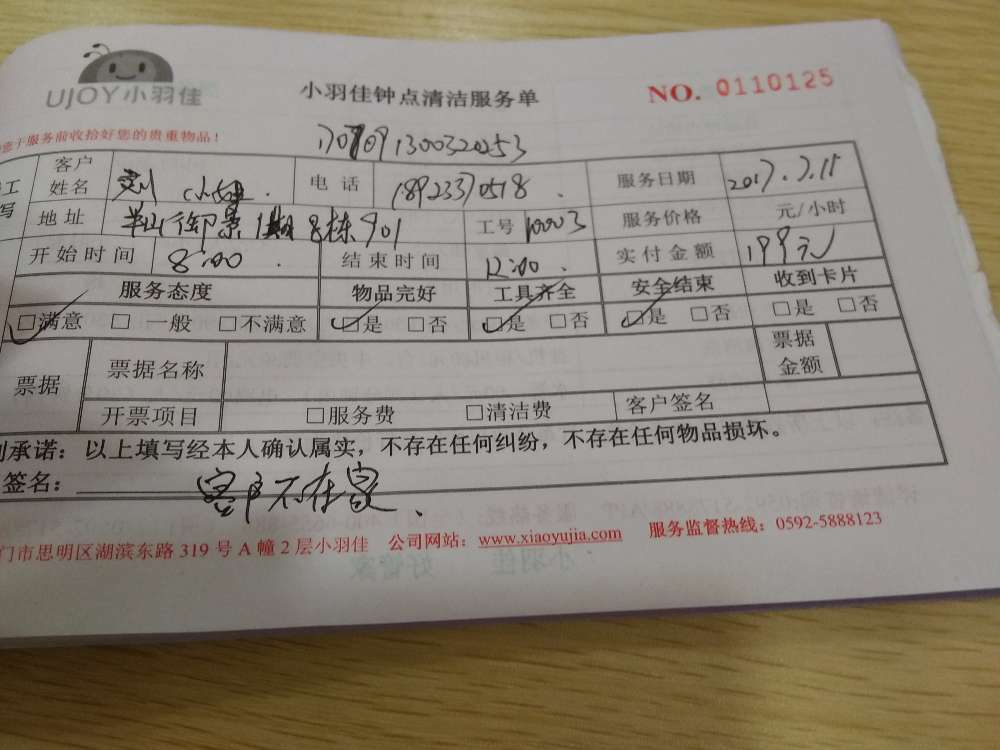 UJOY小羽佳
小羽佳钟点清洁服务单
NO. 0110125
于服务前收拾好您的贵重物品！
130032053
工
写
客户
姓名
刘 小姐
电话
18923370518
服务日期
2017.7.15
地址
半山御景1期8栋901
工号
10003
服务价格
元/小时
开始时间
8:00
结束时间
12:00
实付金额
199元
服务态度
物品完好
工具齐全
安全结束
收到卡片
□满意 □一般 □不满意
□是 □否
□是 □否
□是 □否
□是 □否
票据
票据名称
票据
金额
开票项目
□服务费 □清洁费
客户签名
承诺：以上填写经本人确认属实，不存在任何纠纷，不存在任何物品损坏。
签名：
客户不在家
门市思明区湖滨东路 319 号 A 幢 2 层小羽佳 公司网站：www.xiaoyujia.com 服务监督热线：0592-5888123